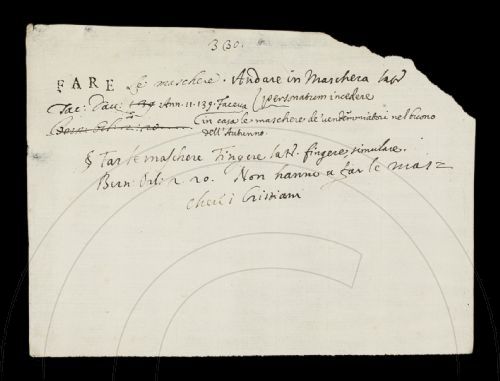 330.
FARE le maschere. Andare in Maschera lat.
Tac: Dav: Ann. 11. 139. Faceva personatum incedere
in casa le maschere de' vendemmiatori nel buono
dell'Autunno.
§ Far le maschere Fingere lat. fingere, simulare.
Bern: Orl. 2. 20. Non hanno a far le mas=
chere i Cristiani